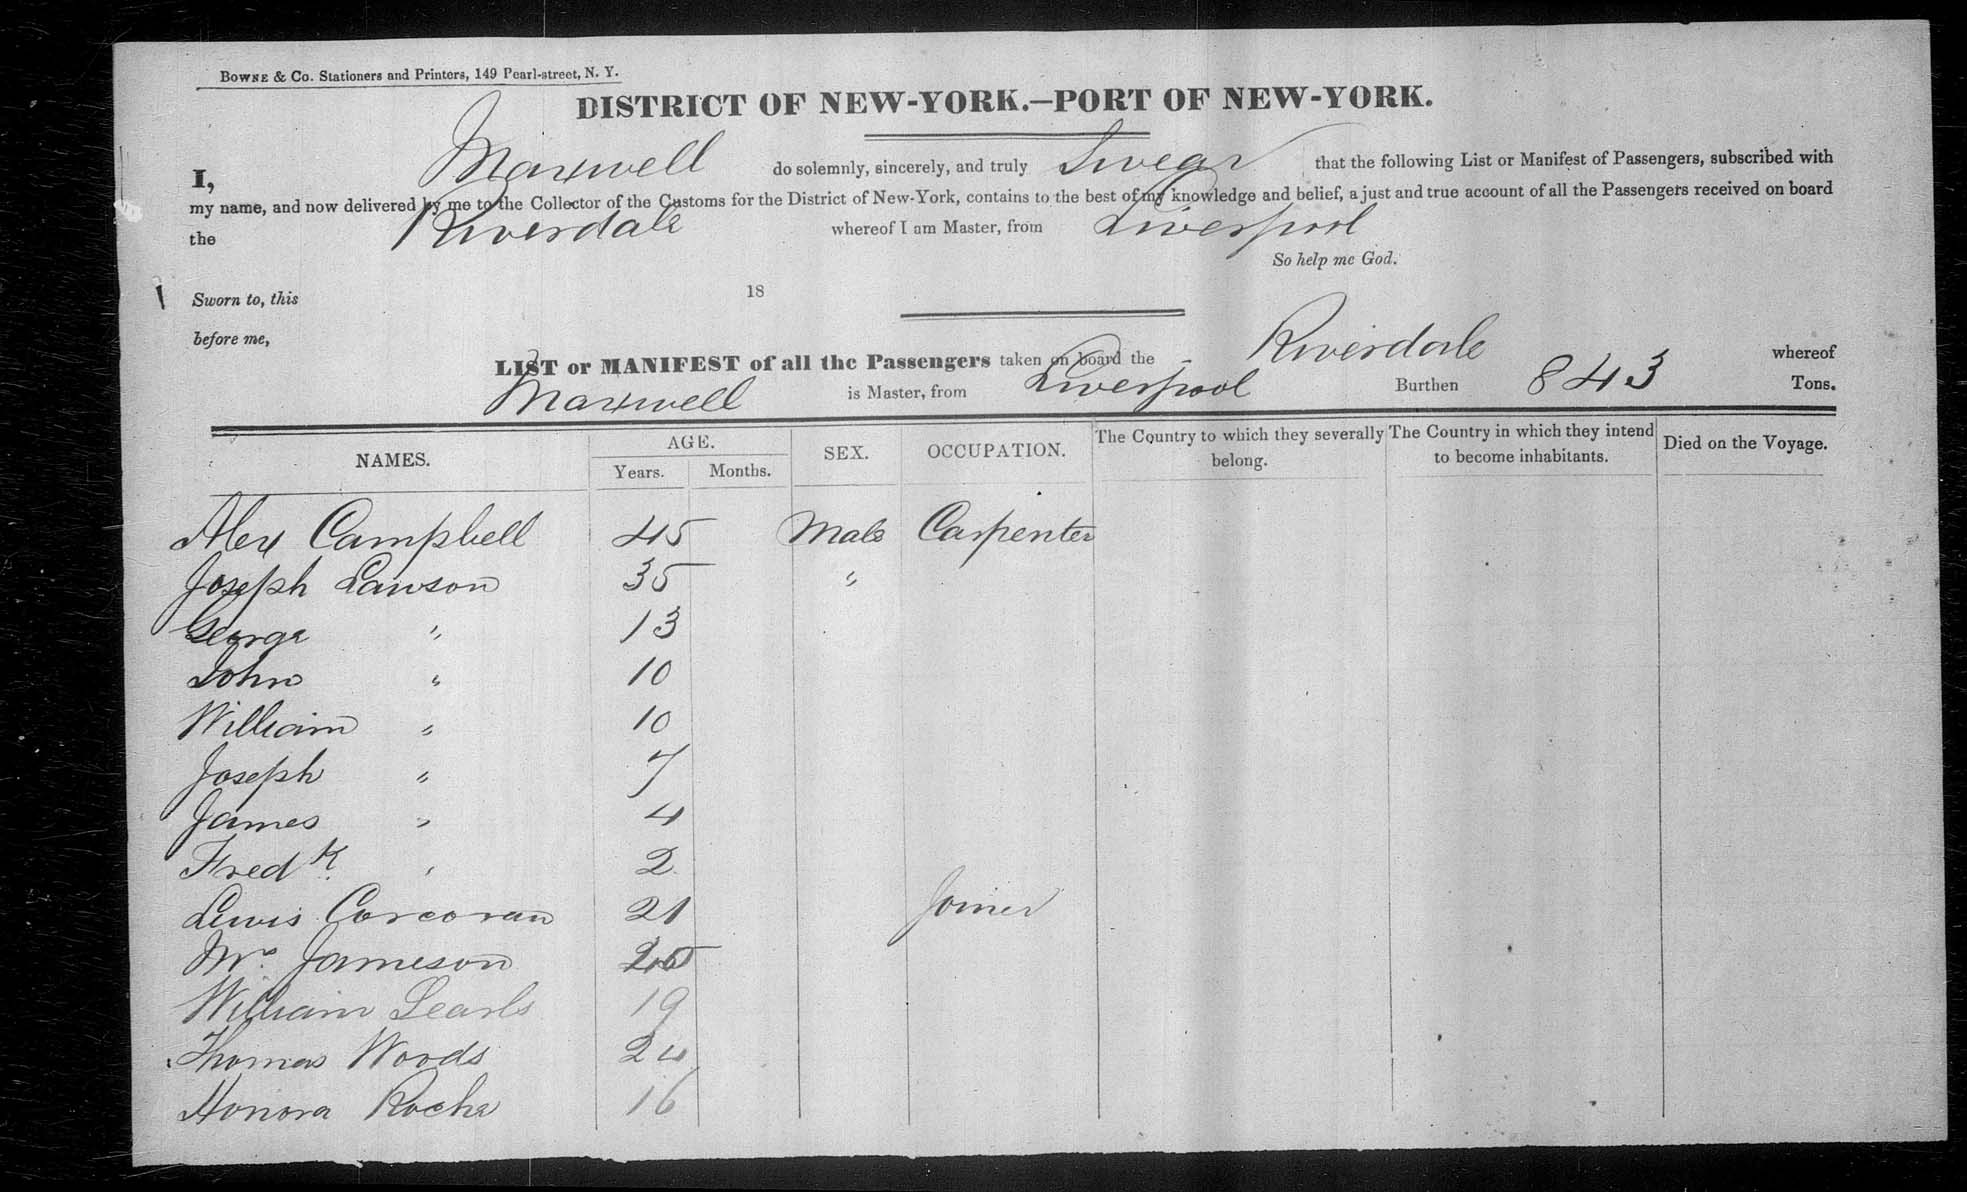 BOWNE & CO. Stationers and Printers, 149 Pearl-street, N. Y.
DISTRICT OF NEW-YORK.—PORT OF NEW-YORK.
I, Maxwell do solemnly, sincerely, and truly Swear that the following List or Manifest of Passengers, subscribed with
my name, and now delivered by me to the Collector of the Customs for the District of New-York, contains to the best of my knowledge and belief, a just and true account of all the Passengers received on board
the Riverdale whereof I am Master, from Liverpool
So help me God.
Sworn to, this 18
before me,
LIST or MANIFEST of all the Passengers taken on board the Riverdale whereof
Maxwell is Master, from Liverpool Burthen 843 Tons.
NAMES. AGE. Years. Months. SEX. OCCUPATION. The Country to which they severally belong. The Country in which they intend to become inhabitants. Died on the Voyage.
Alex Campbell 45 Male Carpenter
Joseph Lawson 35 "
George " 13
John " 10
William " 10
Joseph " 7
James " 4
Fredk. " 2
Lewis Corcoran 21 Joiner
Jameson
William Searls 19
Thomas Woods 24
Honora Roche 16